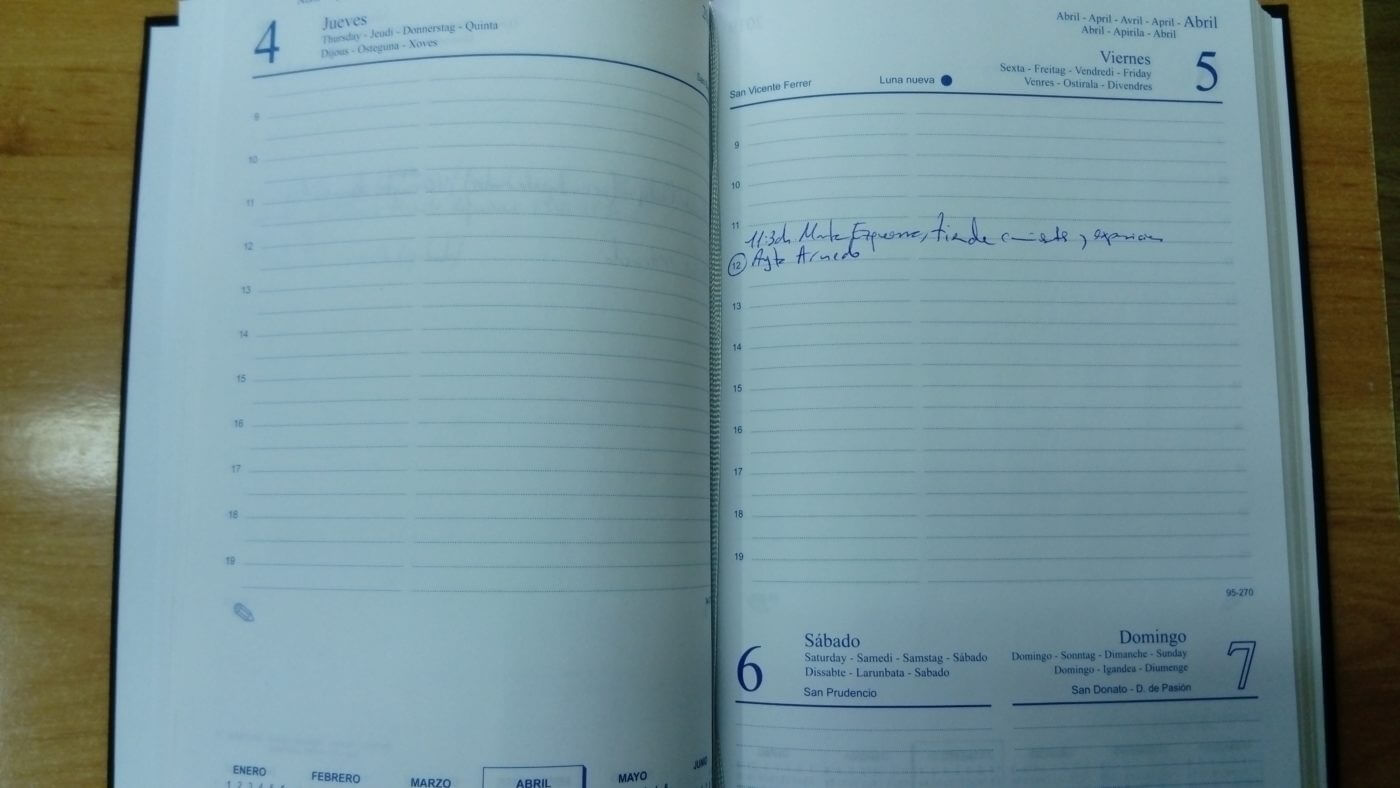 4
Jueves
Thursday - Jeudi - Donnerstag - Quinta
Dijous - Osteguna - Xoves
9
10
11
12
13
14
15
16
17
18
19
ENERO
FEBRERO
MARZO
ABRIL
MAYO
JUNIO
Abril - April - Avril - April - Abril
Abril - Apirila - Abril
Viernes
5
Sexta - Freitag - Vendredi - Friday
Venres - Ostirala - Divendres
San Vicente Ferrer
Luna nueva
9
10
11
11:30h Marta Ezquerro, tienda camisetas y
12 Ayto Arnedo
13
14
15
16
17
18
19
95-270
6
Sábado
Saturday - Samedi - Samstag - Sábado
Dissabte - Larunbata - Sabado
San Prudencio
Domingo
7
Domingo - Sonntag - Dimanche - Sunday
Domingo - Igandea - Diumenge
San Donato - D. de Pasión